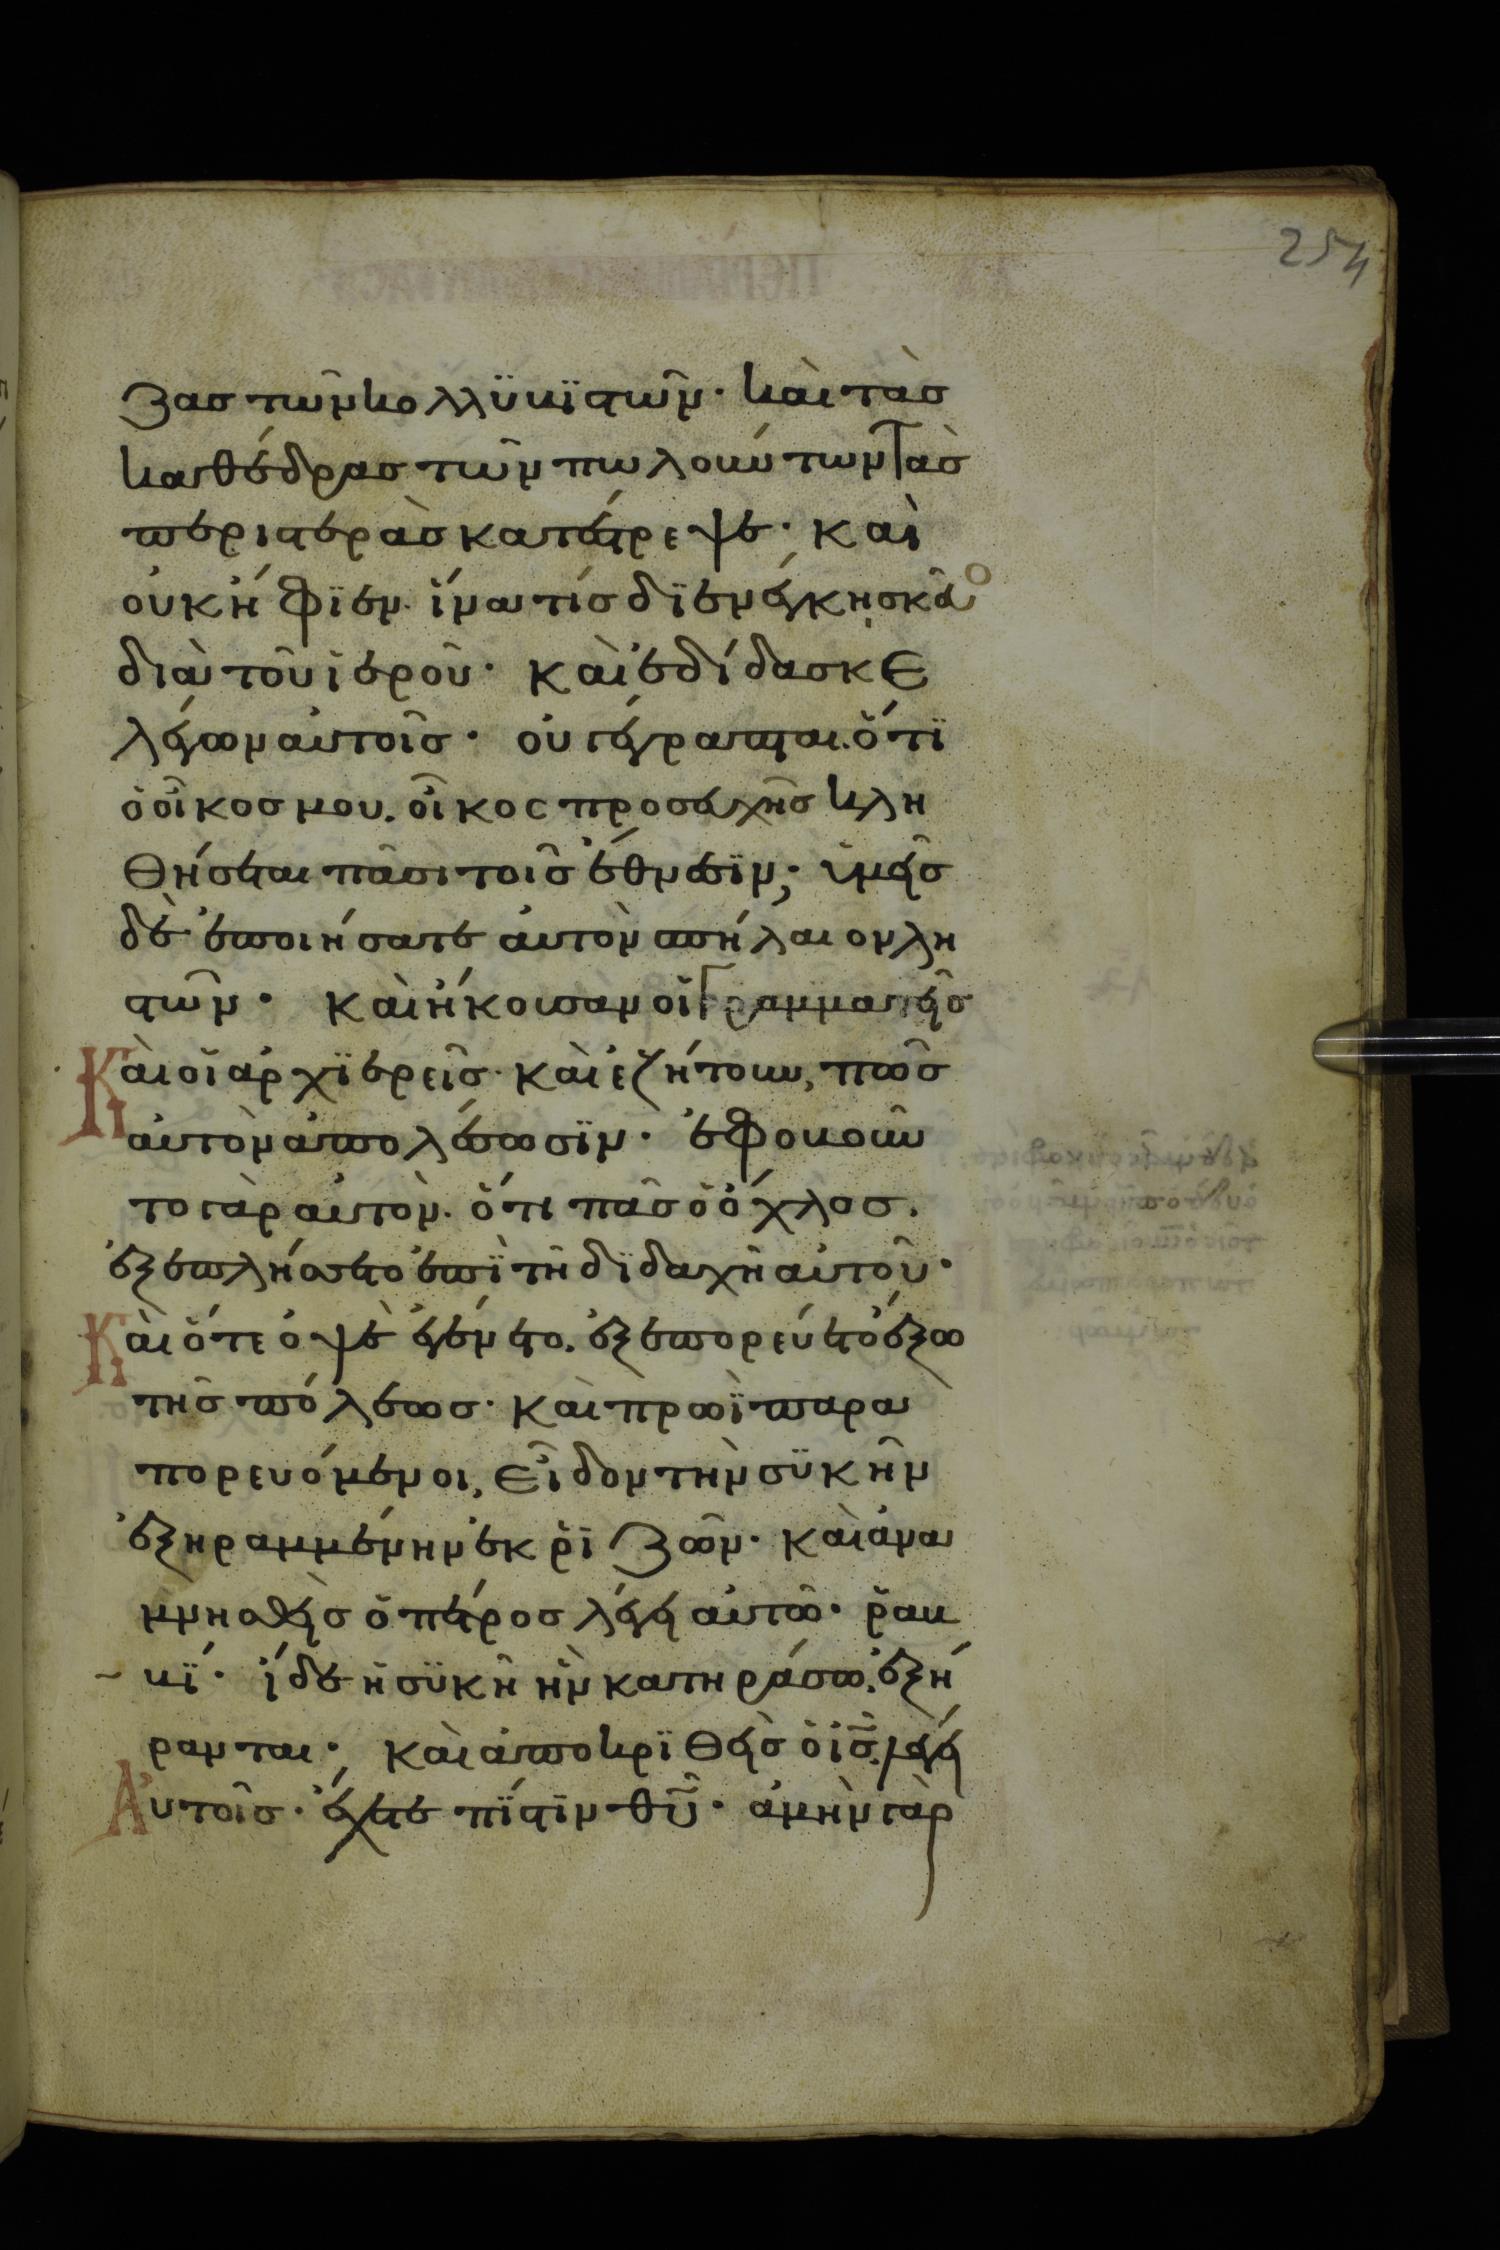 254
ζας τῶν κολλϋβϊστῶν· καὶ τὰς
καθέδρας τῶν πωλούντων τὰς
περιστερὰς κατέστρεψε· καὶ
οὐκ ἤφϊεν. ἵνα τίς δϊενέγκη σκεῦο
διὰ τοῦ ἱεροῦ· καὶ ἐδίδασκε
λέγων αὐτοῖς· οὐ γέγραπται. ὅτϊ
ὁ οἶκος μου. οἶκος προσευχῆς κλη
θήσεται πᾶσι τοῖς ἔθνεσϊν; ὑμεῖς
δὲ ἐποιήσατε αὐτὸν σπήλαιον λη
στῶν· καὶ ἤκουσαν οἱ Γραμματεῖς
Καὶ οἱ ἀρχϊερεῖς· καὶ ἐζήτουν, πῶς
αὐτὸν ἀπολέσωσϊν· ἐφοβοῦν
το γὰρ αὐτὸν· ὅτι πᾶς ὁ ὄχλος.
ἐξεπλήσσετο ἐπϊ τῆ δϊδαχῆ αὐτοῦ·
Καὶ ὅτε ὀψὲ ἐγένετο. ἐξεπορεύετο ἔξω
τῆς πόλεως· καὶ πρωῒ παρα
πορευόμενοι, εἶδον τὴν σϋκῆν
ἐξηραμμένην ἐκ ῥϊζῶν· καὶ ἀνα
μνησθεὶς ὁ πέτρος λέγει αὐτῶ· ῥαβ
βϊ· ἴδε ἡ σϋκῆ ἣν κατηράσω. ἐξή
ρανται; καὶ ἀποκρϊθεὶς ὁ ἰς̅ λέγει
Αὐτοῖς· ἔχετε πϊστϊν θυ̅· ἀμὴν γὰρ